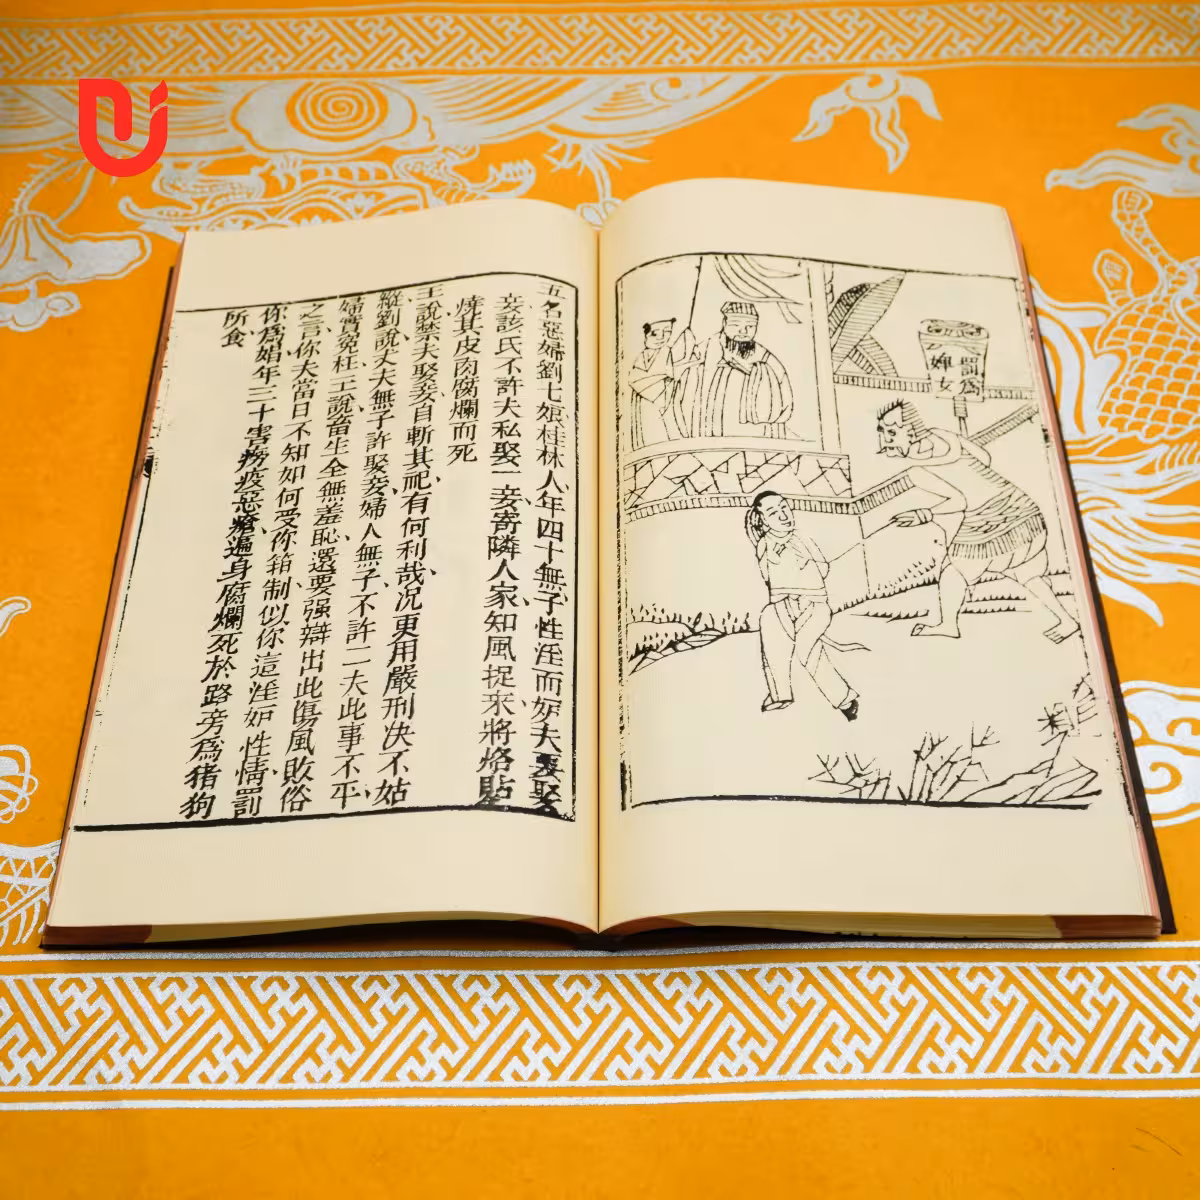 罰為
婢女
五名惡婦劉七娘桂林人年四十無子性淫而妒夫要娶
妾該氏不許夫私娶一妾寄隣人家知風捉來將烙貼
燒其皮肉腐爛而死
王說禁夫娶妾自斬其祀有何利哉况更用嚴刑决不姑
縱劉說丈夫無子許娶妾婦人無子不許二夫此事不平
婦實冤枉王說畜生全無羞恥還要强辯出此傷風敗俗
之言你夫當日不知如何受你箝制似你這淫妒性情罰
你為娼年三十害癆疫惡瘡遍身腐爛死於路旁為猪狗
所食